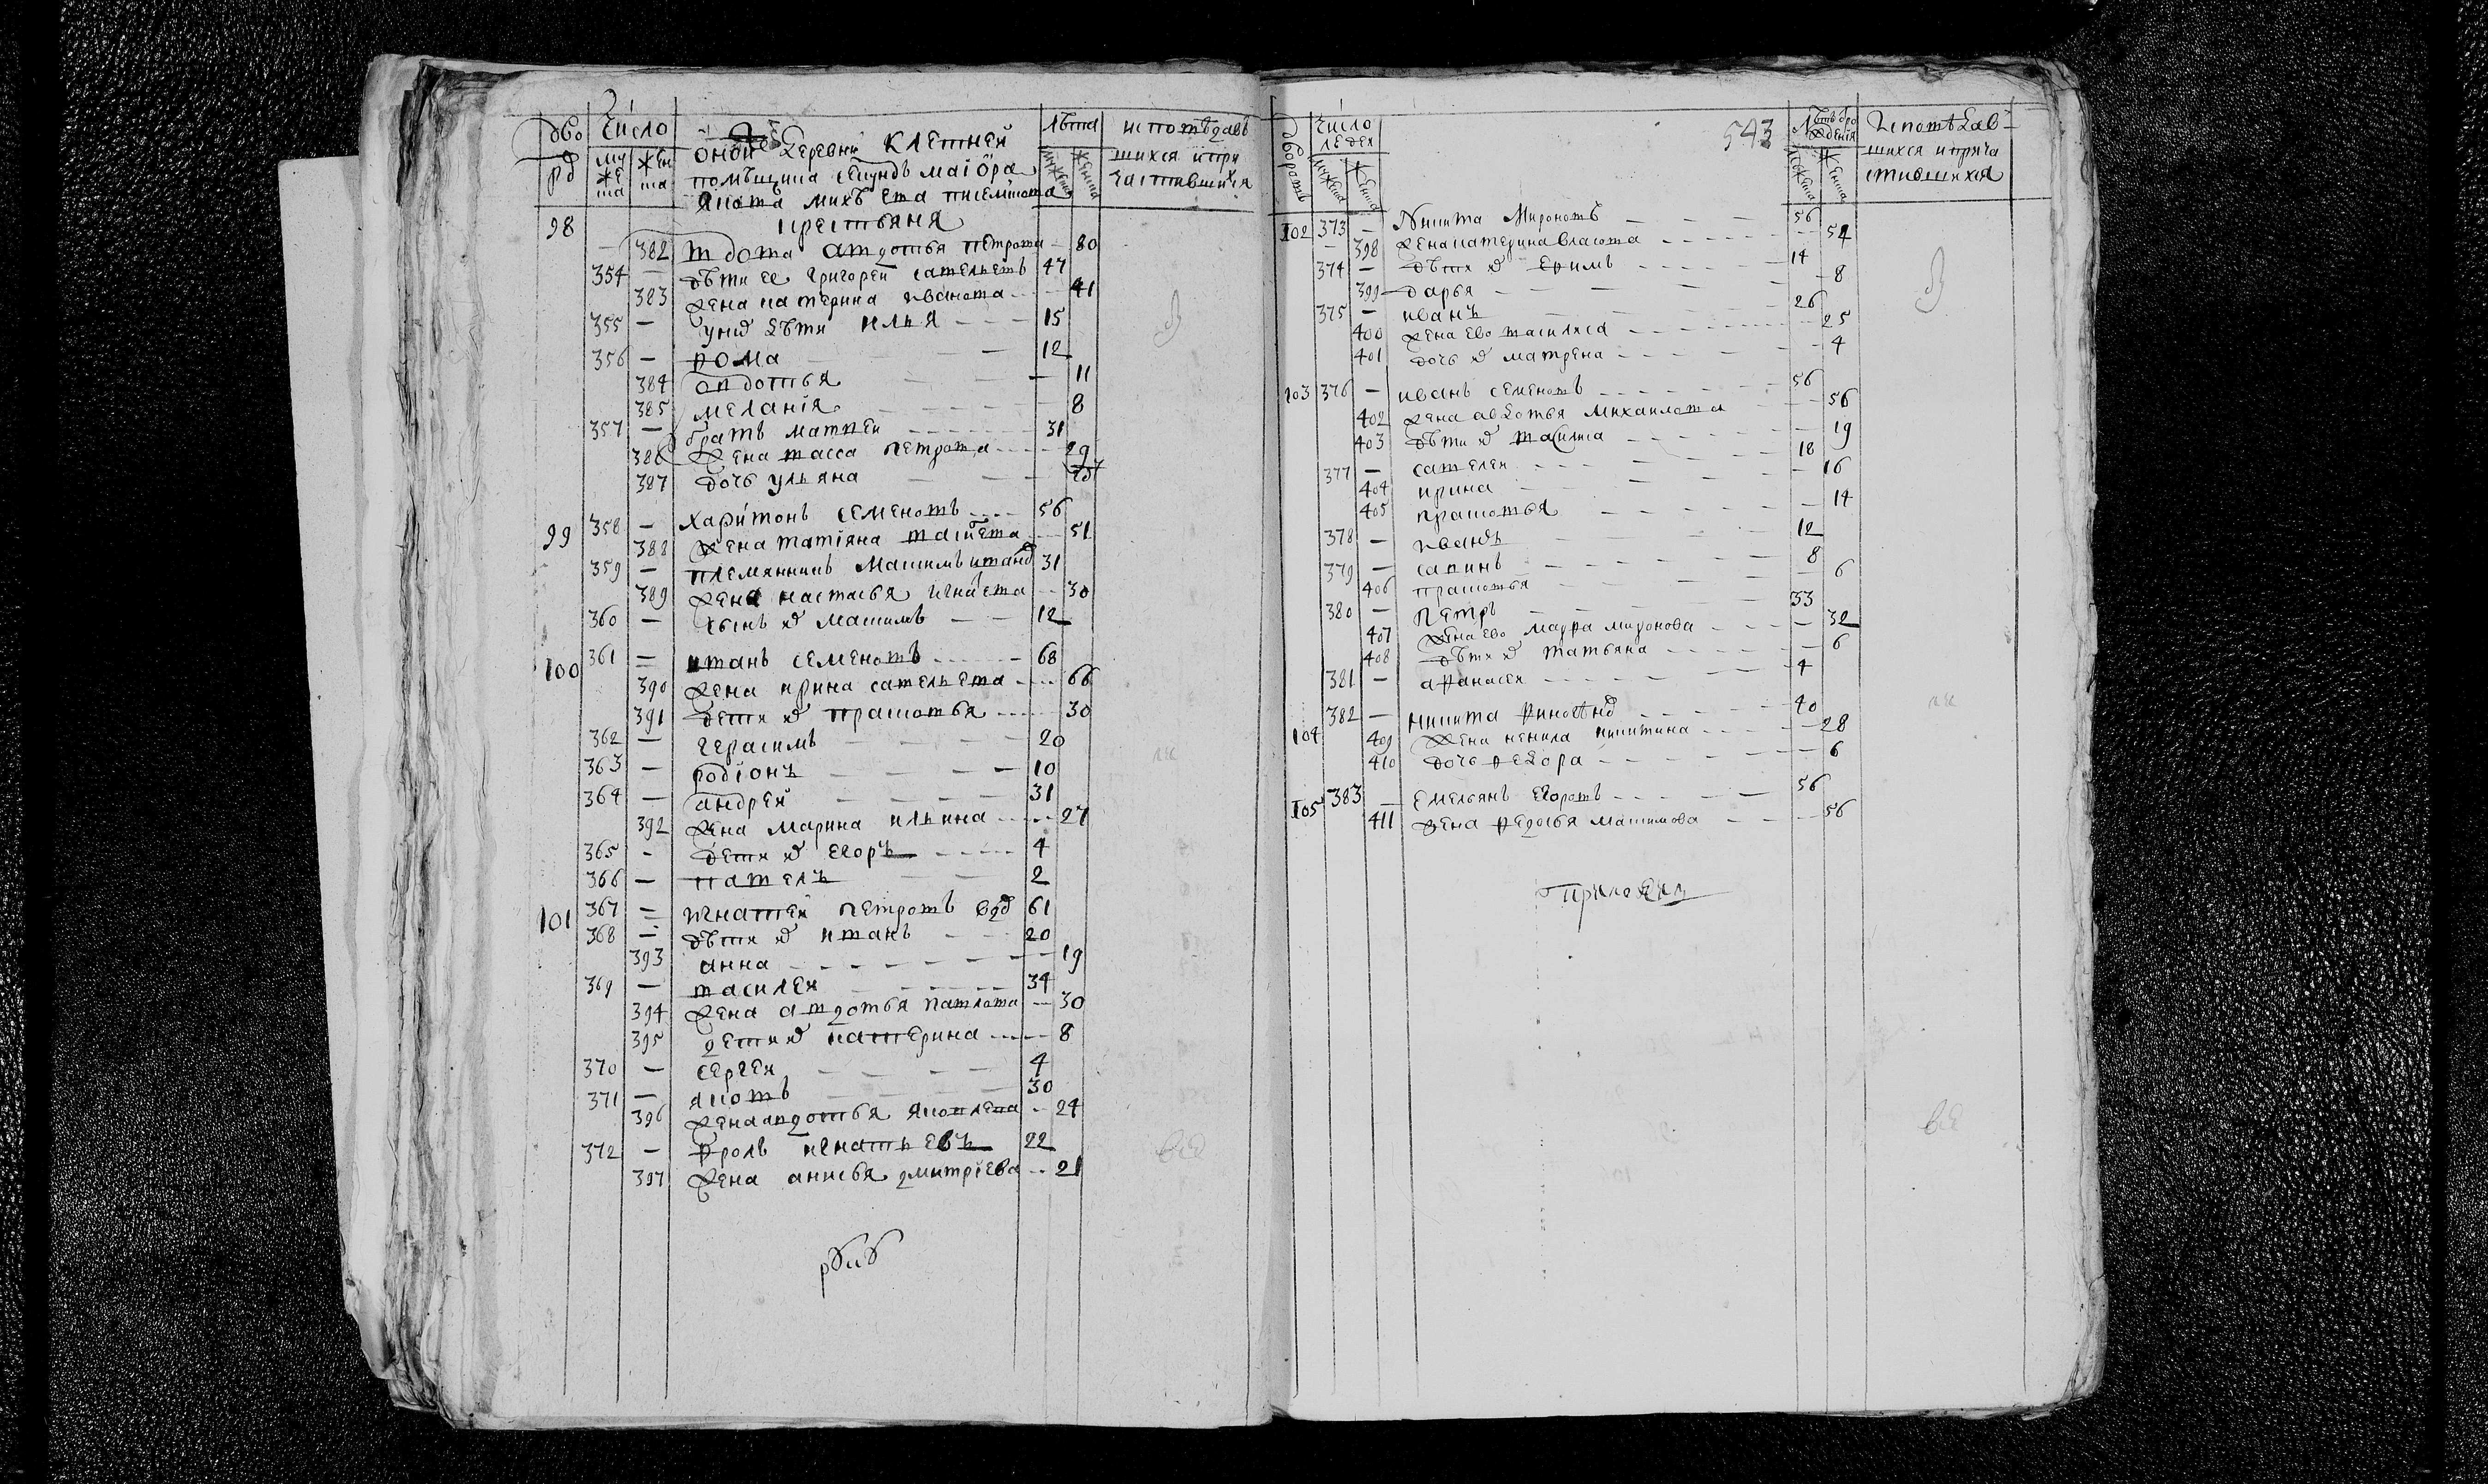 дво число лѣта исповѣдав
ръ муже ска жен ска оной деревни клетней мужеска женска шихся и при
помѣщика секундъ маиора частившихся
якова михѣева писемскова
98 крестьяня
— 382 вдова авдотья петрова — 80
354 — дѣти ее григорей савельевъ 47
383 жена катерина иванова — 41
355 — у них дѣти илья — 15
356 — фома — 12
384 овдотья — 11
385 мелания — 8
357 — братъ матвеи 31
386 жена васса петрова 29
387 дочь ульяна
99 358 — харитонъ семеновъ 56
388 жена татияна 51
359 — племянникъ максимъ иванов 31
389 жена настасья игнатева 30
360 — сынъ их максимъ 12
100 361 — иванъ семеновъ 68
390 жена ирина савельева 66
391 дети их прасковья 30
362 — герасимъ 20
363 — родионъ 10
364 — андрей 31
392 жена марина ильина 27
365 - дети их егоръ 4
366 — павелъ 2
101 367 — игнатеи петровъ вдв 61
368 — дѣти их иванъ 20
393 анна 19
369 — василеи 34
394 жена авдотья павлова 30
395 дети их катерина 8
370 — сергеи 4
371 — яковъ 30
396 жена авдотья яковлева 24
372 — фролъ игнатьевъ 22
397 жена анисья дмитриева 21
543
дворовъ число людеи лѣтъ от рождения исповѣдав-
мужеска женска мужеска женска шихся и прича
стившихся
102 373 — Никита Мироновъ 56
— 398 жена катерина власова 54
374 — дѣти их ефимъ 14
399 дарья 8
375 — иванъ 26
400 жена ево василиса 25
401 дочь их матрена 4
103 376 — иванъ семеновъ 56
402 жена авдотья михаилова 56
403 дѣти их василиса 19
377 — савелеи 18
404 ирина 16
405 прасковья 14
378 — иванъ 12
379 — савинъ 8
406 прасковья 6
380 — петръ 33
407 жена ево мавра миронова 32
408 дѣти их татьяна 6
381 — афанасеи 4
104 382 — никита финогѣнов 40
409 жена ненила никитина 28
410 дочь федора 6
105 383 — емельянъ егоровъ 56
411 жена федосья максимова 56